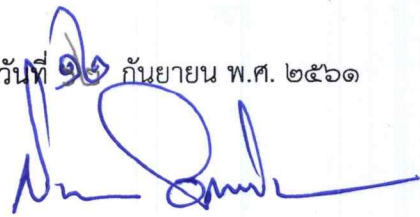 วันที่ ๑๒ กันยายน พ.ศ. ๒๕๖๑